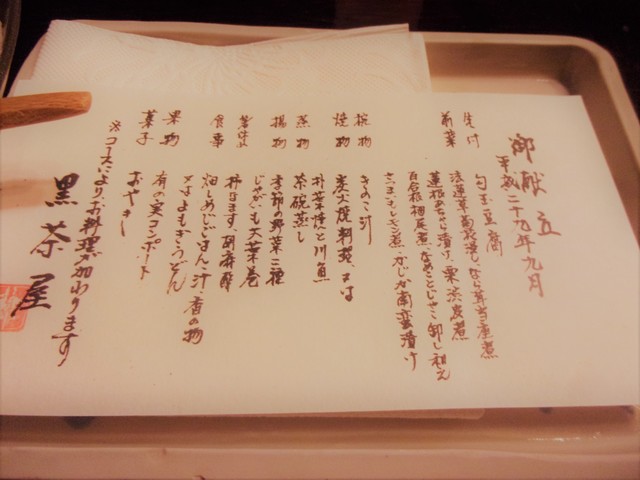 御献立
平成二十九年九月
先付 勾玉豆腐
前菜 法蓮草菊花浸し、なら茸当座煮
蓮根あちゃら漬け、栗渋皮煮
百合根梅尾煮、なめことじゃこ卸し和え
さつま芋レモン煮、かじか南蛮漬け
椀物 きのこ汁
焼物 炭火焼料理、又は
朴葉焼と川魚
蒸物 茶碗蒸し
揚物 季節の野菜二種
じゃがいも大葉巻
箸休め 柿なます、胡麻酢
食事 畑しめじごはん、汁、香の物
又はよもぎうどん
果物 有の実コンポート
菓子 おやき
※コースにより、お料理が加わります
黒茶屋